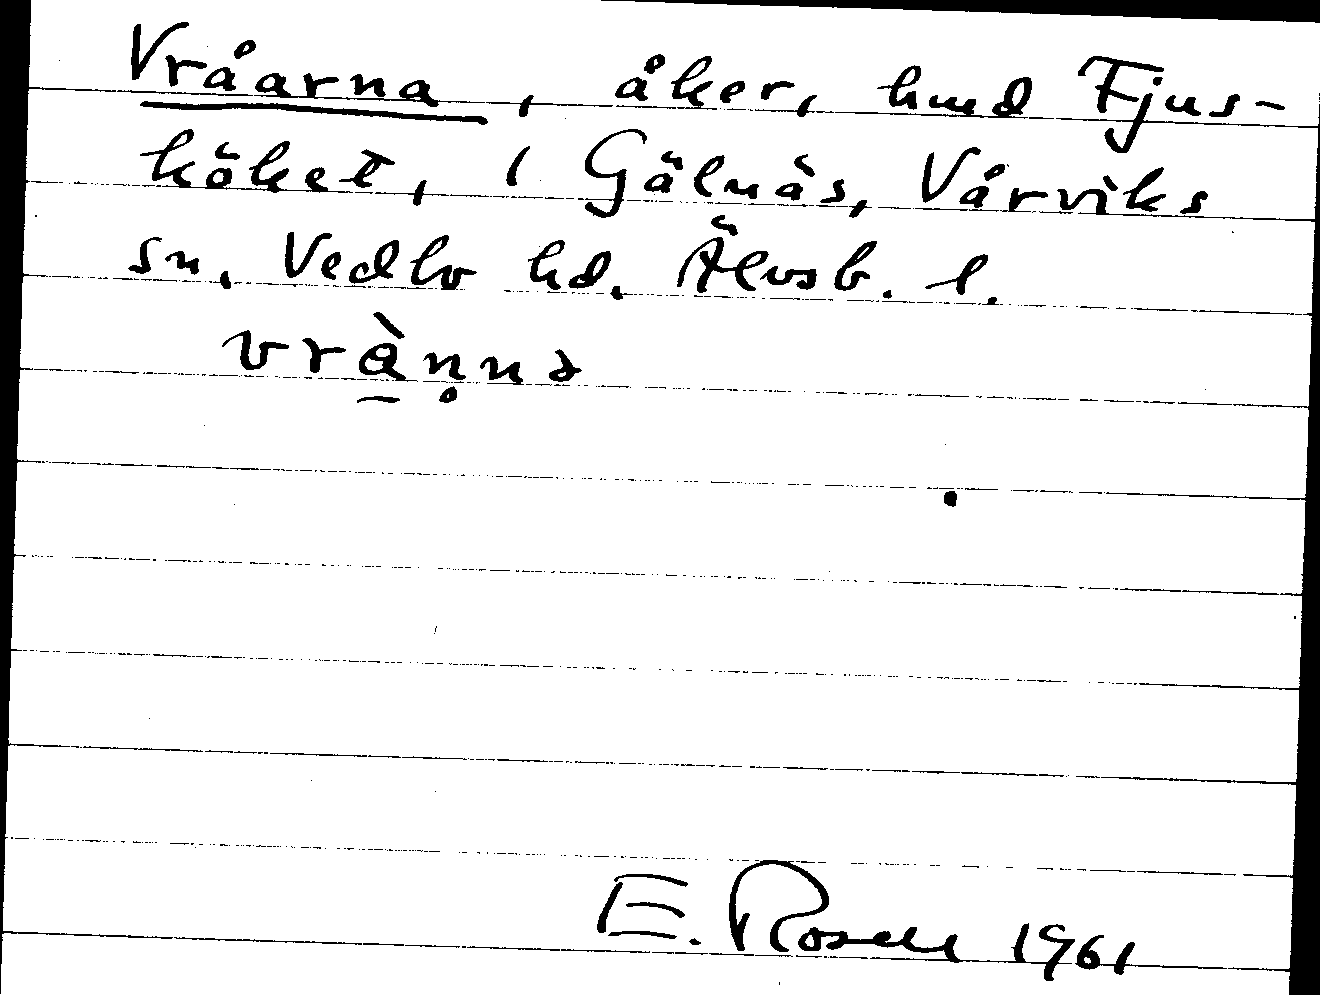 Vråarna, åker, hmd Fjus-
köket, 1 Gälnäs, Vårviks
sn, Vedbo hd. Älvsb. l.
vrà̱ṇnə
E. Rosell 1961